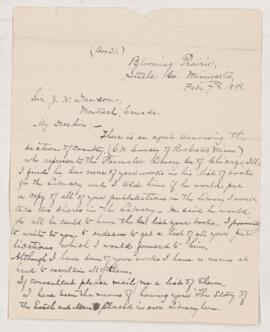 (Box 31.)
Blooming Prairie,
Steele Co. Minnesota,
Feb. 7th 1899.
Sir J. W. Dawson,
Montreal, Canada.
My Dear Sir, —
There is an agent canvassing this
section of country, (S. M. of Rochester, Minn.)
who represents the Library Co. of Chicago, Ill.
I find he has none of your works in his list of books
for the Library and I told him if he would put
a copy of all of your publications in the Library I would
take two shares in the Library. He said he would
do all he could to have them list your books. I promised
to write to you & endeavor to get a list of all your pub-
lications which I would forward to him.
Although I have some of your works I have no means at
hand to ascertain all of them.
If convenient please mail me a list of them.
I have been the means of having your "The Story of
the Earth and Man" placed in our Library here.